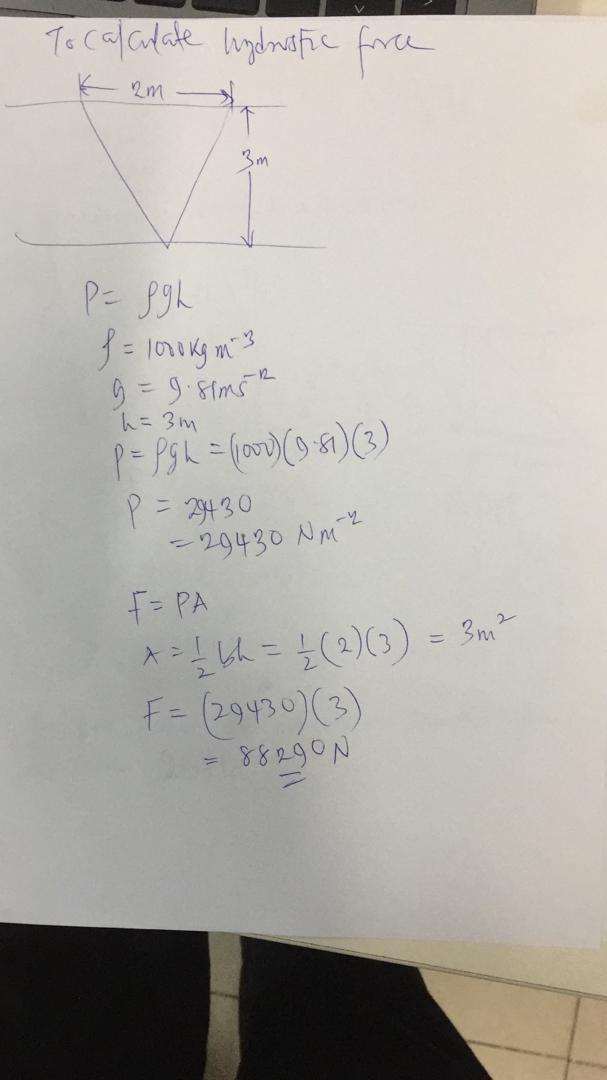 To calculate hydrostic force
2m
3m
P = ρgh
ρ = 1000kg m⁻³
g = 9.81ms⁻²
h = 3m
P = ρgh = (1000)(9.81)(3)
P = 29430
= 29430 Nm⁻²
F = PA
A = 1/2 bh = 1/2 (2)(3) = 3m²
F = (29430)(3)
= 88290N